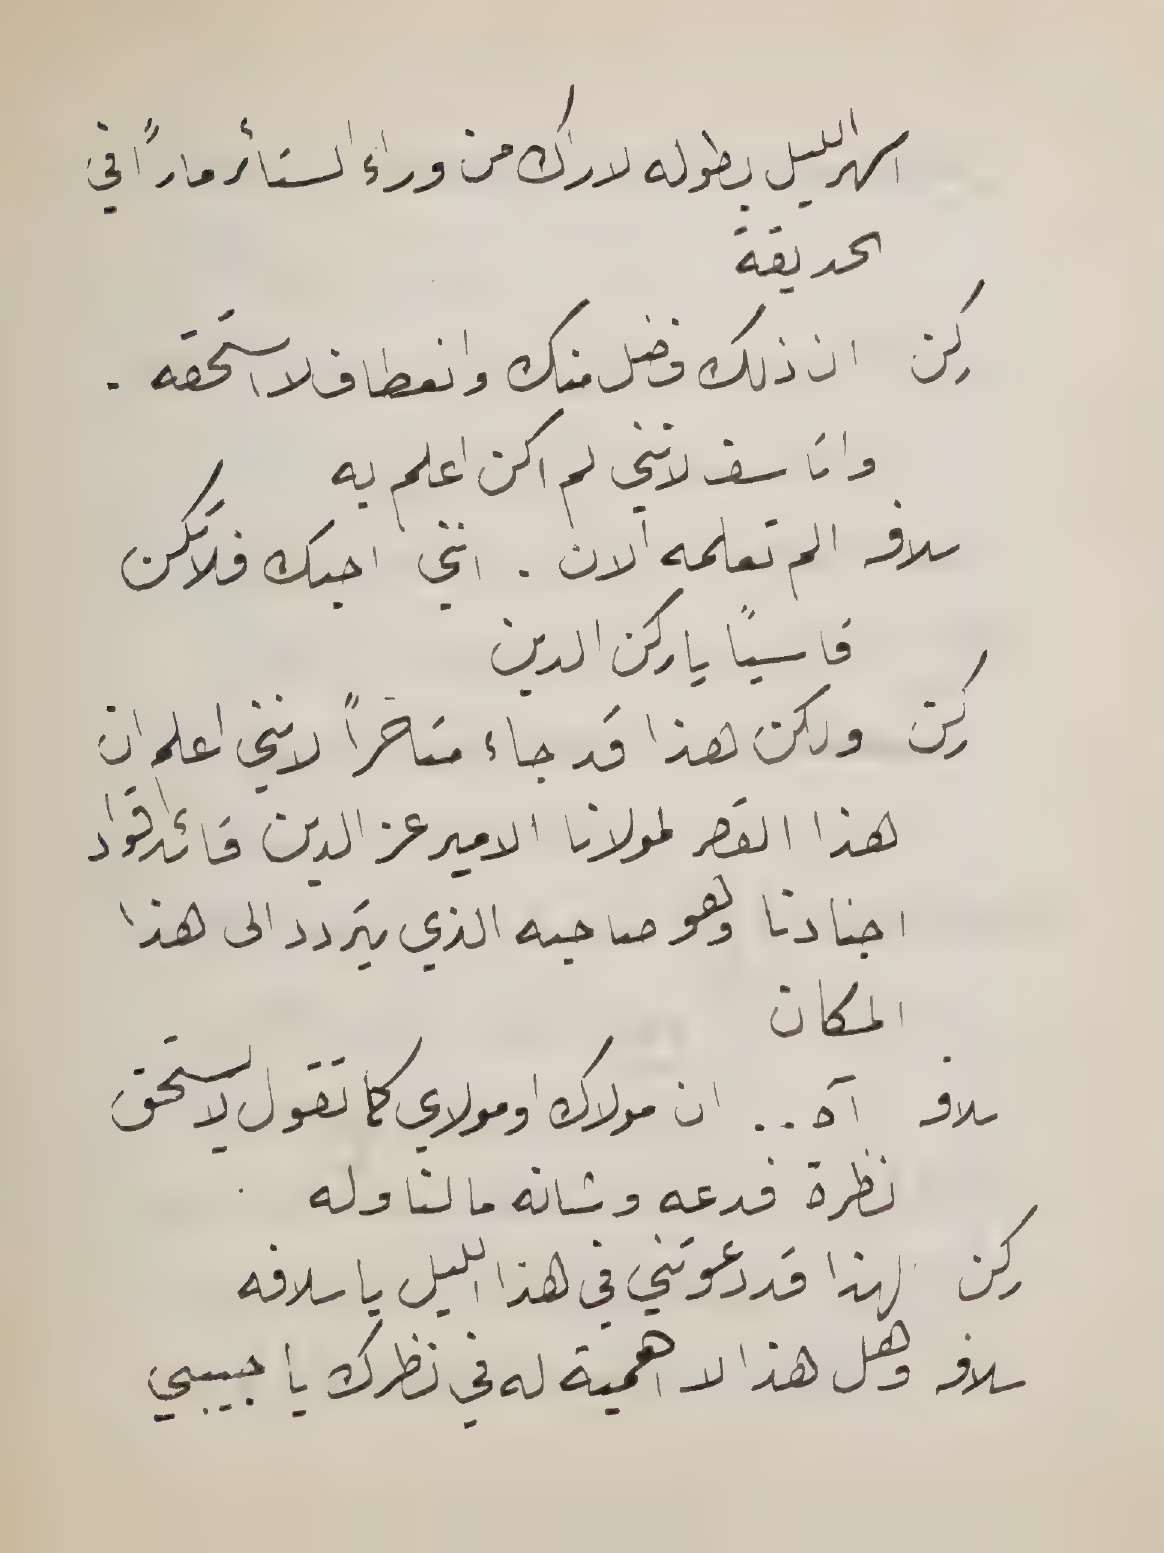 اسهر الليل بطوله لاراك من وراء الستائر ماراً في
الحديقة
ركن ان ذلك فضل منك وانعطاف لا استحقه .
وانا سف لانني لم اكن اعلم به
سلافه الم تعلمه الان . انني احبك فلا تكن
قاسياً يا ركن الدين
ركن ولكن هذا قد جاء متاخراً لانني اعلم ان
هذا القصر لمولانا الامير عز الدين قائد قواد
اجنادنا وهو صاحبه الذي يتردد الى هذا
المكان
سلافه آه .. ان مولاك او مولاي كما تقول لا يستحق
نظرة فدعه وشانه مالنا وله
ركن لهذا قد دعوتني في هذا الليل يا سلافه
سلافه وهل هذا لا اهمية له في نظرك يا حبيبي